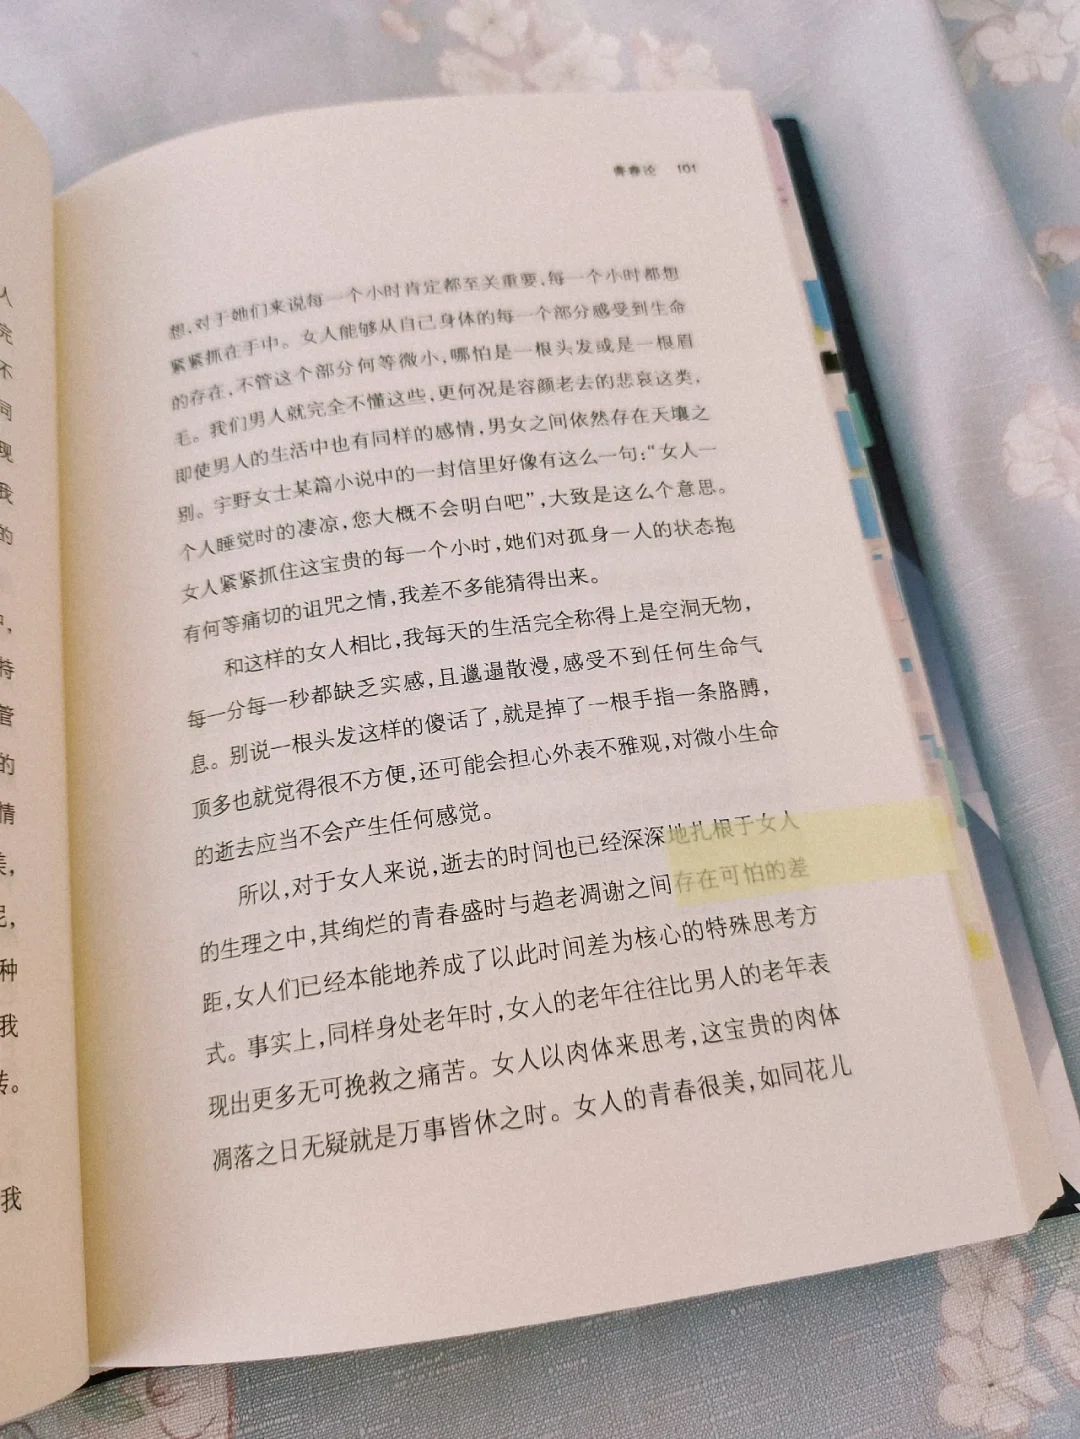 青春论 101
想,对于她们来说每一个小时肯定都至关重要,每一个小时都想
紧紧抓在手中。女人能够从自己身体的每一个部分感受到生命
的存在,不管这个部分何等微小,哪怕是一根头发或是一根眉
毛。我们男人就完全不懂这些,更何况是容颜老去的悲哀这类,
即使男人的生活中也有同样的感情,男女之间依然存在天壤之
别。宇野女士某篇小说中的一封信里好像有这么一句:“女人一
个人睡觉时的凄凉,您大概不会明白吧”,大致是这么个意思。
女人紧紧抓住这宝贵的每一个小时,她们对孤身一人的状态抱
有何等痛切的诅咒之情,我差不多能猜得出来。
和这样的女人相比,我每天的生活完全称得上是空洞无物,
每一分每一秒都缺乏实感,且邋遢散漫,感受不到任何生命气
息。别说一根头发这样的傻话了,就是掉了一根手指一条胳膊,
顶多也就觉得很不方便,还可能会担心外表不雅观,对微小生命
的逝去应当不会产生任何感觉。
所以,对于女人来说,逝去的时间也已经深深地扎根于女人
的生理之中,其绚烂的青春盛时与趋老凋谢之间存在可怕的差
距,女人们已经本能地养成了以此时间差为核心的特殊思考方
式。事实上,同样身处老年时,女人的老年往往比男人的老年表
现出更多无可挽救之痛苦。女人以肉体来思考,这宝贵的肉体
凋落之日无疑就是万事皆休之时。女人的青春很美,如同花儿